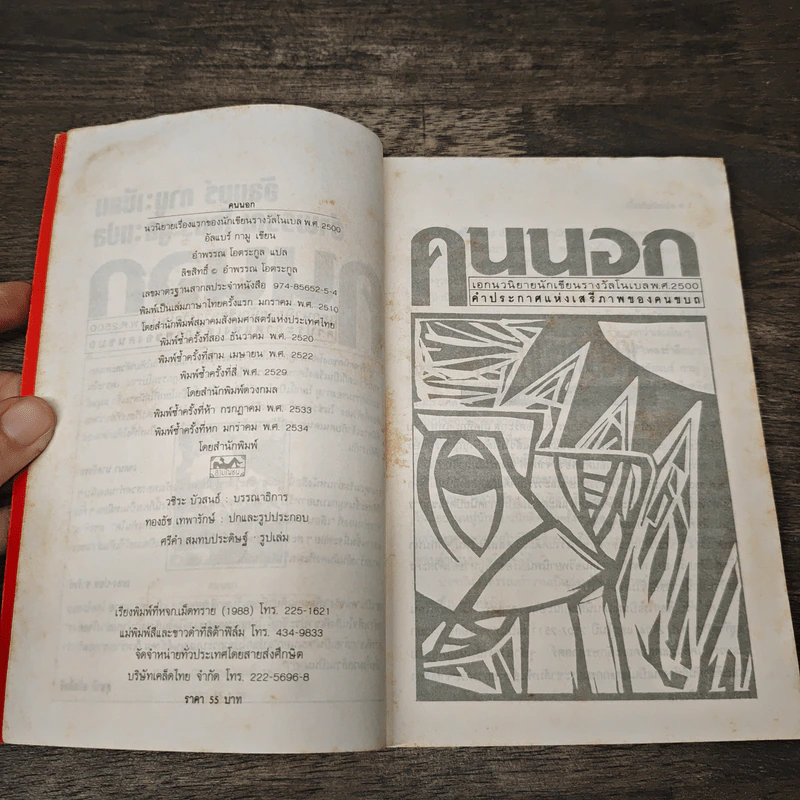 คนนอก
นวนิยายเรื่องแรกของนักเขียนรางวัลโนเบล พ.ศ. 2500
อัลแบร์ กามู เขียน
อำพรรณ โอตระกูล แปล
ลิขสิทธิ์ © อำพรรณ โอตระกูล
เลขมาตรฐานสากลประจำหนังสือ 974-85652-5-4
พิมพ์เป็นเล่มภาษาไทยครั้งแรก มกราคม พ.ศ. 2510
โดยสำนักพิมพ์สมาคมสังคมศาสตร์แห่งประเทศไทย
พิมพ์ซ้ำครั้งที่สอง ธันวาคม พ.ศ. 2520
พิมพ์ซ้ำครั้งที่สาม เมษายน พ.ศ. 2522
พิมพ์ซ้ำครั้งที่สี่ พ.ศ. 2529
โดยสำนักพิมพ์ดวงกมล
พิมพ์ซ้ำครั้งที่ห้า กรกฎาคม พ.ศ. 2533
พิมพ์ซ้ำครั้งที่หก มกราคม พ.ศ. 2534
โดยสำนักพิมพ์
วชิระ บัวสนธ์ : บรรณาธิการ
ทองธัช เทพารักษ์ : ปกและรูปประกอบ
ศรีคำ สมทบประดิษฐ์ : รูปเล่ม
เรียงพิมพ์ที่หจก.เม็ดทราย (1988) โทร. 225-1621
แม่พิมพ์สีและขาวดำที่ลีด้าฟิล์ม โทร. 434-9833
จัดจำหน่ายทั่วประเทศโดยสายส่งศึกษิต
บริษัทเคล็ดไทย จำกัด โทร. 222-5696-8
ราคา 55 บาท
คนนอก
เอกนวนิยายนักเขียนรางวัลโนเบลพ.ศ.2500
คำประกาศแห่งเสรีภาพของคนขบถ